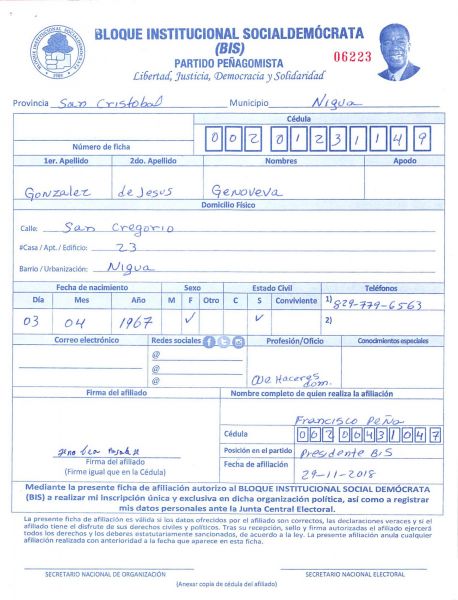 BLOQUE INSTITUCIONAL SOCIALDEMÓCRATA
(BIS)
06223
PARTIDO PEÑAGOMISTA
Libertad, Justicia, Democracia y Solidaridad
Provincia San Cristobal Municipio Nigua
Cédula
Número de ficha 002 0123114 9
1er. Apellido 2do. Apellido Nombres Apodo
Gonzalez de Jesus Genoveva
Domicilio Físico
Calle: San Gregorio
#Casa / Apt. / Edificio: 23
Barrio / Urbanización: Nigua
Fecha de nacimiento Sexo Estado Civil Teléfonos
Día Mes Año M F Otro C S Conviviente 1) 829-779-6563
03 04 1967 ✓ ✓ 2)
Correo electrónico Redes sociales Profesión/Oficio Conocimientos especiales
@
@
@
Haceres
dom.
Firma del afiliado Nombre completo de quien realiza la afiliación
Francisco Peña
Cédula 002 0043104 7
Posición en el partido Presidente BIS
Firma del afiliado
(Firme igual que en la Cédula)
Fecha de afiliación 29-11-2018
Mediante la presente ficha de afiliación autorizo al BLOQUE INSTITUCIONAL SOCIAL DEMÓCRATA
(BIS) a realizar mi inscripción única y exclusiva en dicha organización política, así como a registrar
mis datos personales ante la Junta Central Electoral.
La presente ficha de afiliación es válida si los datos ofrecidos por el afiliado son correctos, las declaraciones veraces y si el
afiliado tiene el disfrute de sus derechos civiles y políticos. Tras su recepción, sello y firma autorizadas el afiliado ejercerá
todos los derechos y los deberes estatutariamente sancionados, de acuerdo a la ley. La presente afiliación anula cualquier
afiliación realizada con anterioridad a la fecha que aparece en esta ficha.
SECRETARIO NACIONAL DE ORGANIZACIÓN SECRETARIO NACIONAL ELECTORAL
(Anexar copia de cédula del afiliado)